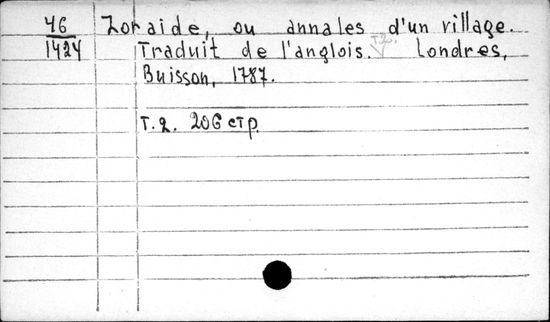 46 Zoraide, ou annales d'un village.
1424 Traduit de l'anglois. т.2. Londres,
Buisson, 1787.
т. 2. 206 стр.